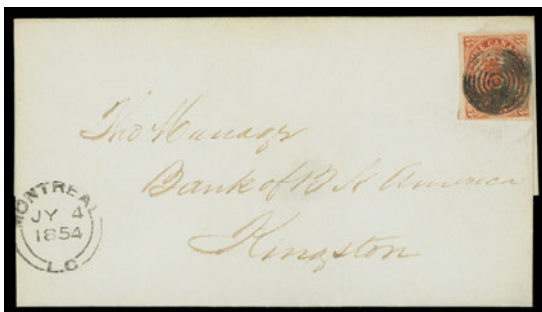 CANADA
The Manager
Bank of B N America
Kingston
MONTREAL
JY 4
1854
L.C